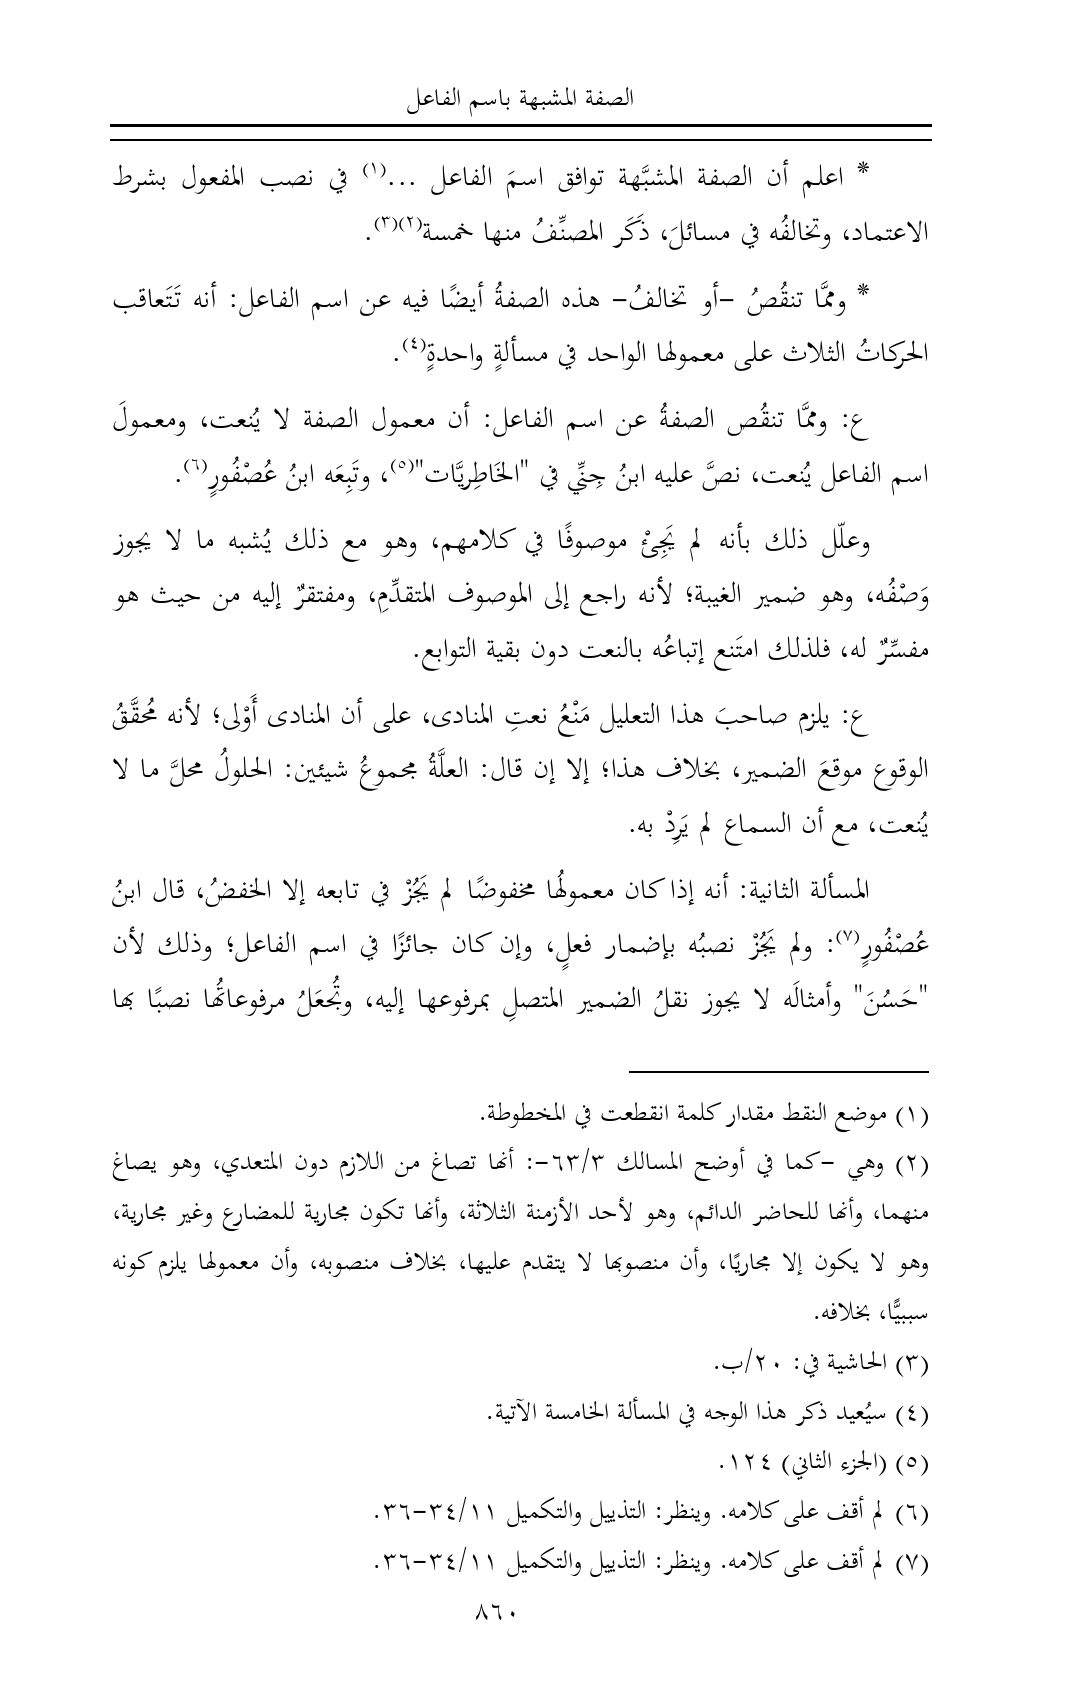 الصفة المشبهة باسم الفاعل
* اعلم أن الصفة المشبَّهة توافق اسمَ الفاعل ...(١) في نصب المفعول بشرط
الاعتماد، وتخالفُه في مسائلَ، ذَكَر المصنِّفُ منها خمسة(٢)(٣).
* وممَّا تنقُصُ -أو تخالفُ- هذه الصفةُ أيضًا فيه عن اسم الفاعل: أنه تَتَعاقب
الحركاتُ الثلاث على معمولها الواحد في مسألةٍ واحدةٍ(٤).
ع: وممَّا تنقُص الصفةُ عن اسم الفاعل: أن معمول الصفة لا يُنعت، ومعمولَ
اسم الفاعل يُنعت، نصَّ عليه ابنُ جِنِّي في "الخَاطِريَّات"(٥)، وتَبِعَه ابنُ عُصْفُورٍ(٦).
وعلّل ذلك بأنه لم يَجِئْ موصوفًا في كلامهم، وهو مع ذلك يُشبه ما لا يجوز
وَصْفُه، وهو ضمير الغيبة؛ لأنه راجع إلى الموصوف المتقدِّمِ، ومفتقرٌ إليه من حيث هو
مفسِّرٌ له، فلذلك امتَنع إتباعُه بالنعت دون بقية التوابع.
ع: يلزم صاحبَ هذا التعليل مَنْعُ نعتِ المنادى، على أن المنادى أَوْلى؛ لأنه مُحقَّقُ
الوقوع موقعَ الضمير، بخلاف هذا؛ إلا إن قال: العلَّةُ مجموعُ شيئين: الحلولُ محلَّ ما لا
يُنعت، مع أن السماع لم يَرِدْ به.
المسألة الثانية: أنه إذا كان معمولُها مخفوضًا لم يَجُزْ في تابعه إلا الخفضُ، قال ابنُ
عُصْفُورٍ(٧): ولم يَجُزْ نصبُه بإضمار فعلٍ، وإن كان جائزًا في اسم الفاعل؛ وذلك لأن
"حَسُنَ" وأمثالَه لا يجوز نقلُ الضمير المتصلِ بمرفوعها إليه، وتُجعَلُ مرفوعاتُها نصبًا بها
(١) موضع النقط مقدار كلمة انقطعت في المخطوطة.
(٢) وهي -كما في أوضح المسالك ٦٣/٣-: أنها تصاغ من اللازم دون المتعدي، وهو يصاغ
منهما، وأنها للحاضر الدائم، وهو لأحد الأزمنة الثلاثة، وأنها تكون مجارية للمضارع وغير مجارية،
وهو لا يكون إلا مجاريًا، وأن منصوبها لا يتقدم عليها، بخلاف منصوبه، وأن معمولها يلزم كونه
سببيًّا، بخلافه.
(٣) الحاشية في: ٢٠/ب.
(٤) سيُعيد ذكر هذا الوجه في المسألة الخامسة الآتية.
(٥) (الجزء الثاني) ١٢٤.
(٦) لم أقف على كلامه. وينظر: التذييل والتكميل ٣٤/١١-٣٦.
(٧) لم أقف على كلامه. وينظر: التذييل والتكميل ٣٤/١١-٣٦.
٨٦٠